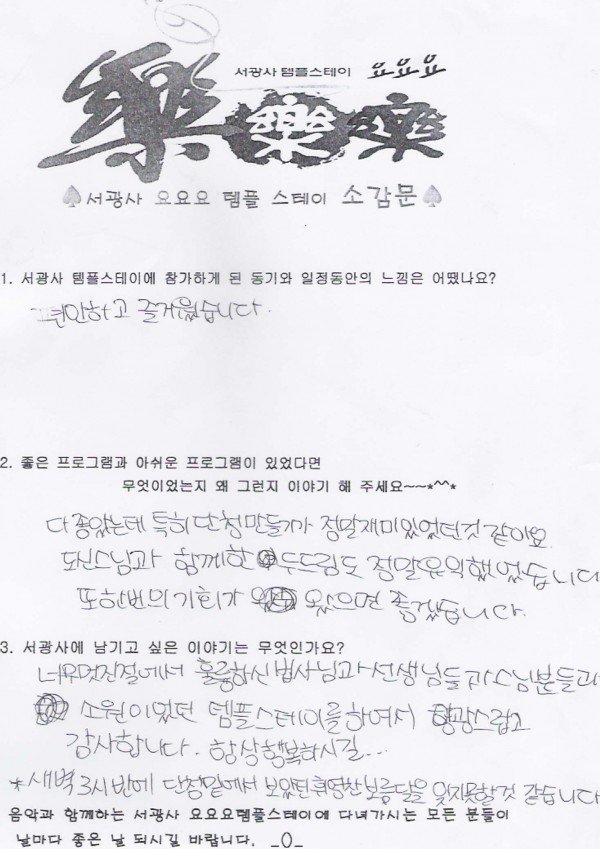 서광사 템플스테이 요요요
樂 樂 樂
서광사 요요요 템플 스테이 소감문
1. 서광사 템플스테이에 참가하게 된 동기와 일정동안의 느낌은 어땠나요?
편안하고 즐거웠습니다.
2. 좋은 프로그램과 아쉬운 프로그램이 있었다면
무엇이었는지 왜 그런지 이야기 해 주세요~~*^^*
다 좋았는데 특히 단청만들기가 정말재미있었던것 같아요.
도신스님과 함께한 두드림도 정말유익했었습니다
또한번의 기회가 왔으면 좋겠습니다.
3. 서광사에 남기고 싶은 이야기는 무엇인가요?
너무멋진절에서 훌륭하신 법사님과 선생님들과 스님분들과
소원이었던 템플스테이를 하여서 영광스럽고
감사합니다. 항상행복하시길...
*새벽 3시반에 단청밑에서 보았던 휘영찬 보름달을 잊지못할것 같습니다
음악과 함께하는 서광사 요요요템플스테이에 다녀가시는 모든 분들이
날마다 좋은 날 되시길 바랍니다. _()_